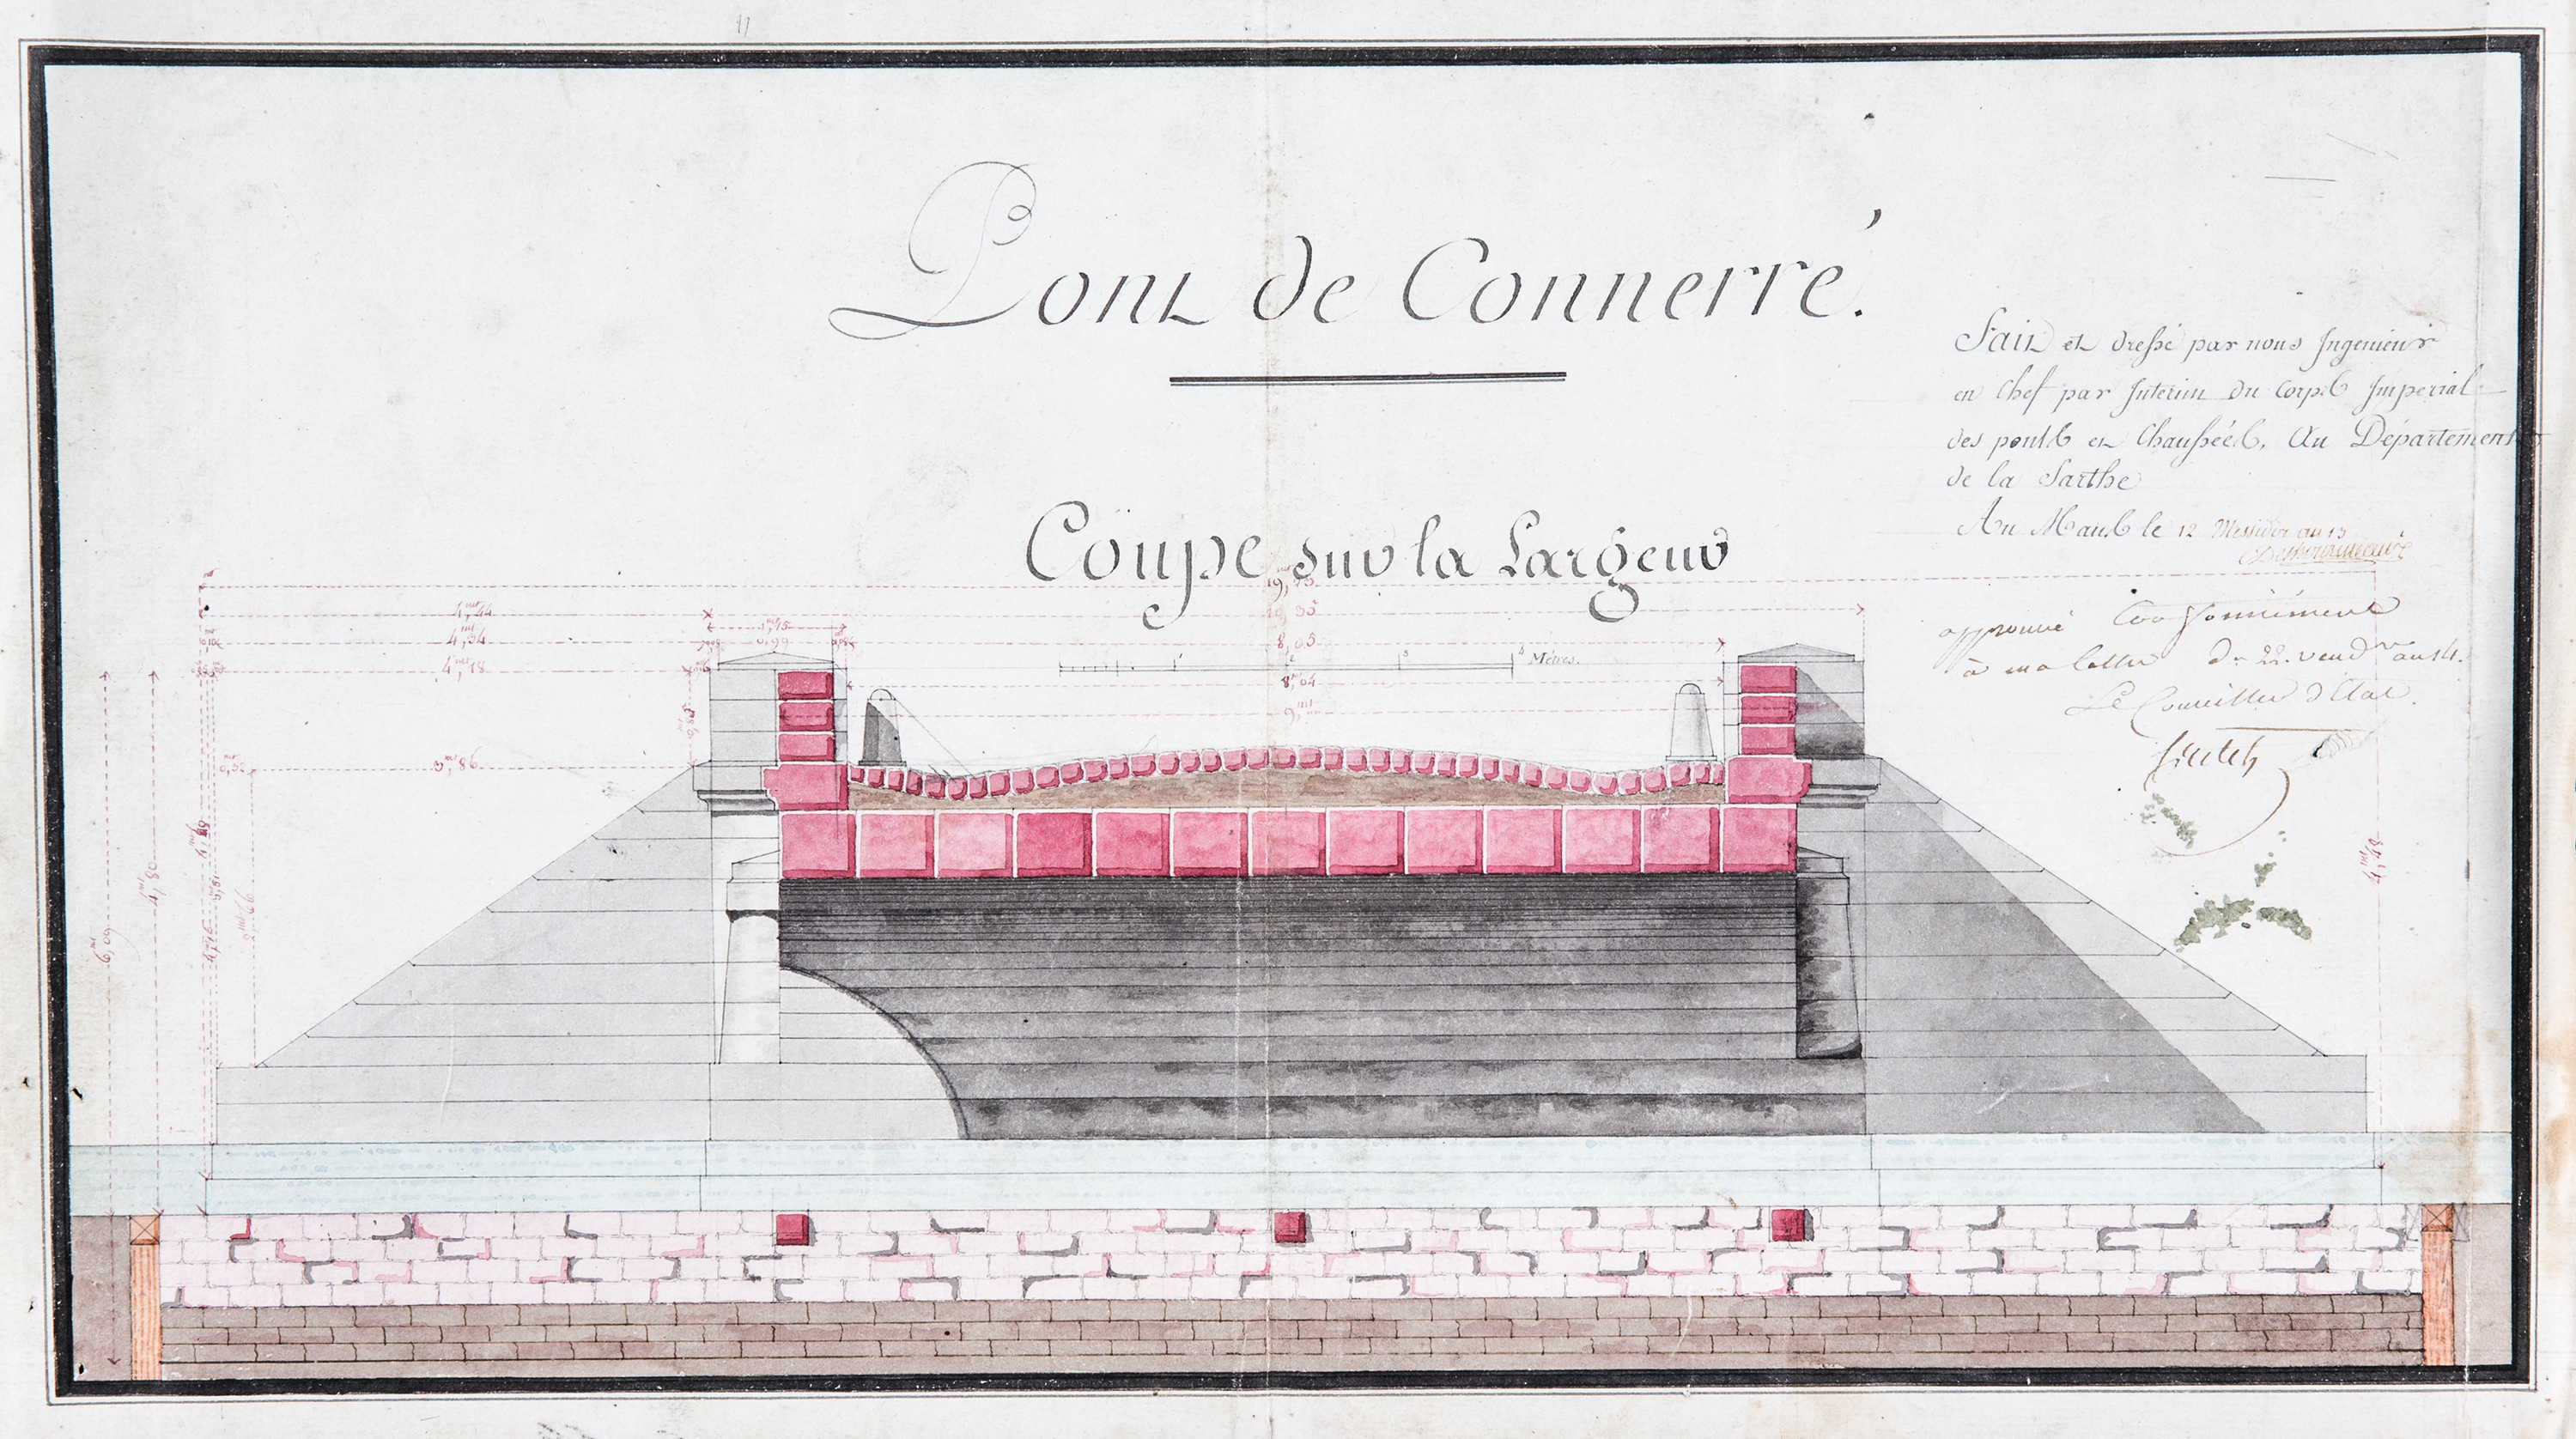 Pont de Connerré.
Fait et dressé par nous Ingenieur
en Chef par Interim du Corps Imperial
des ponts et Chaussées, Au Département
de la Sarthe
Au Mans le 12 Messidor an 13
Coupe sur la Largeur
approuvé Conformément
à ma lettre du 22 vend.re an 14.
Le Conseiller d'Etat
19,
4,44
1,15
4,34
0,99
8,65
4,18
Mètres.
8,04
9,m
3,86
4,80
6,09
2,66
4,49